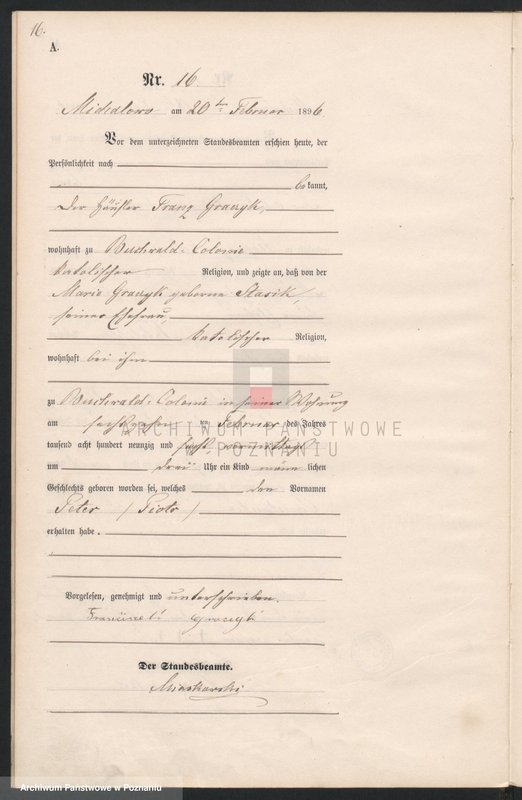 16.
A.
Nr. 16.
am 20ten Februar 1896
Vor dem unterzeichneten Standesbeamten erschien heute, der
Persönlichkeit nach
bekannt,
der Häusler Franz Graczyk,
wohnhaft zu Buchwald-Colonie
katolischer Religion, und zeigte an, daß von der
Marie Graczyk geborne Stasik,
seiner Ehefrau,
katolischer Religion,
wohnhaft bei ihm
zu Buchwald-Colonie in seiner Wohnung
am sechszehn ten Februar des Jahres
tausend acht hundert neunzig und sechs, vormittags
um drei Uhr ein Kind männlichen
Geschlechts geboren worden sei, welches den Vornamen
Peter (Piotr)
erhalten habe.
Vorgelesen, genehmigt und unterschrieben.
Graczyk
Der Standesbeamte.
ARCHIWUM PAŃSTWOWE
W POZNANIU
Archiwum Państwowe w Poznaniu